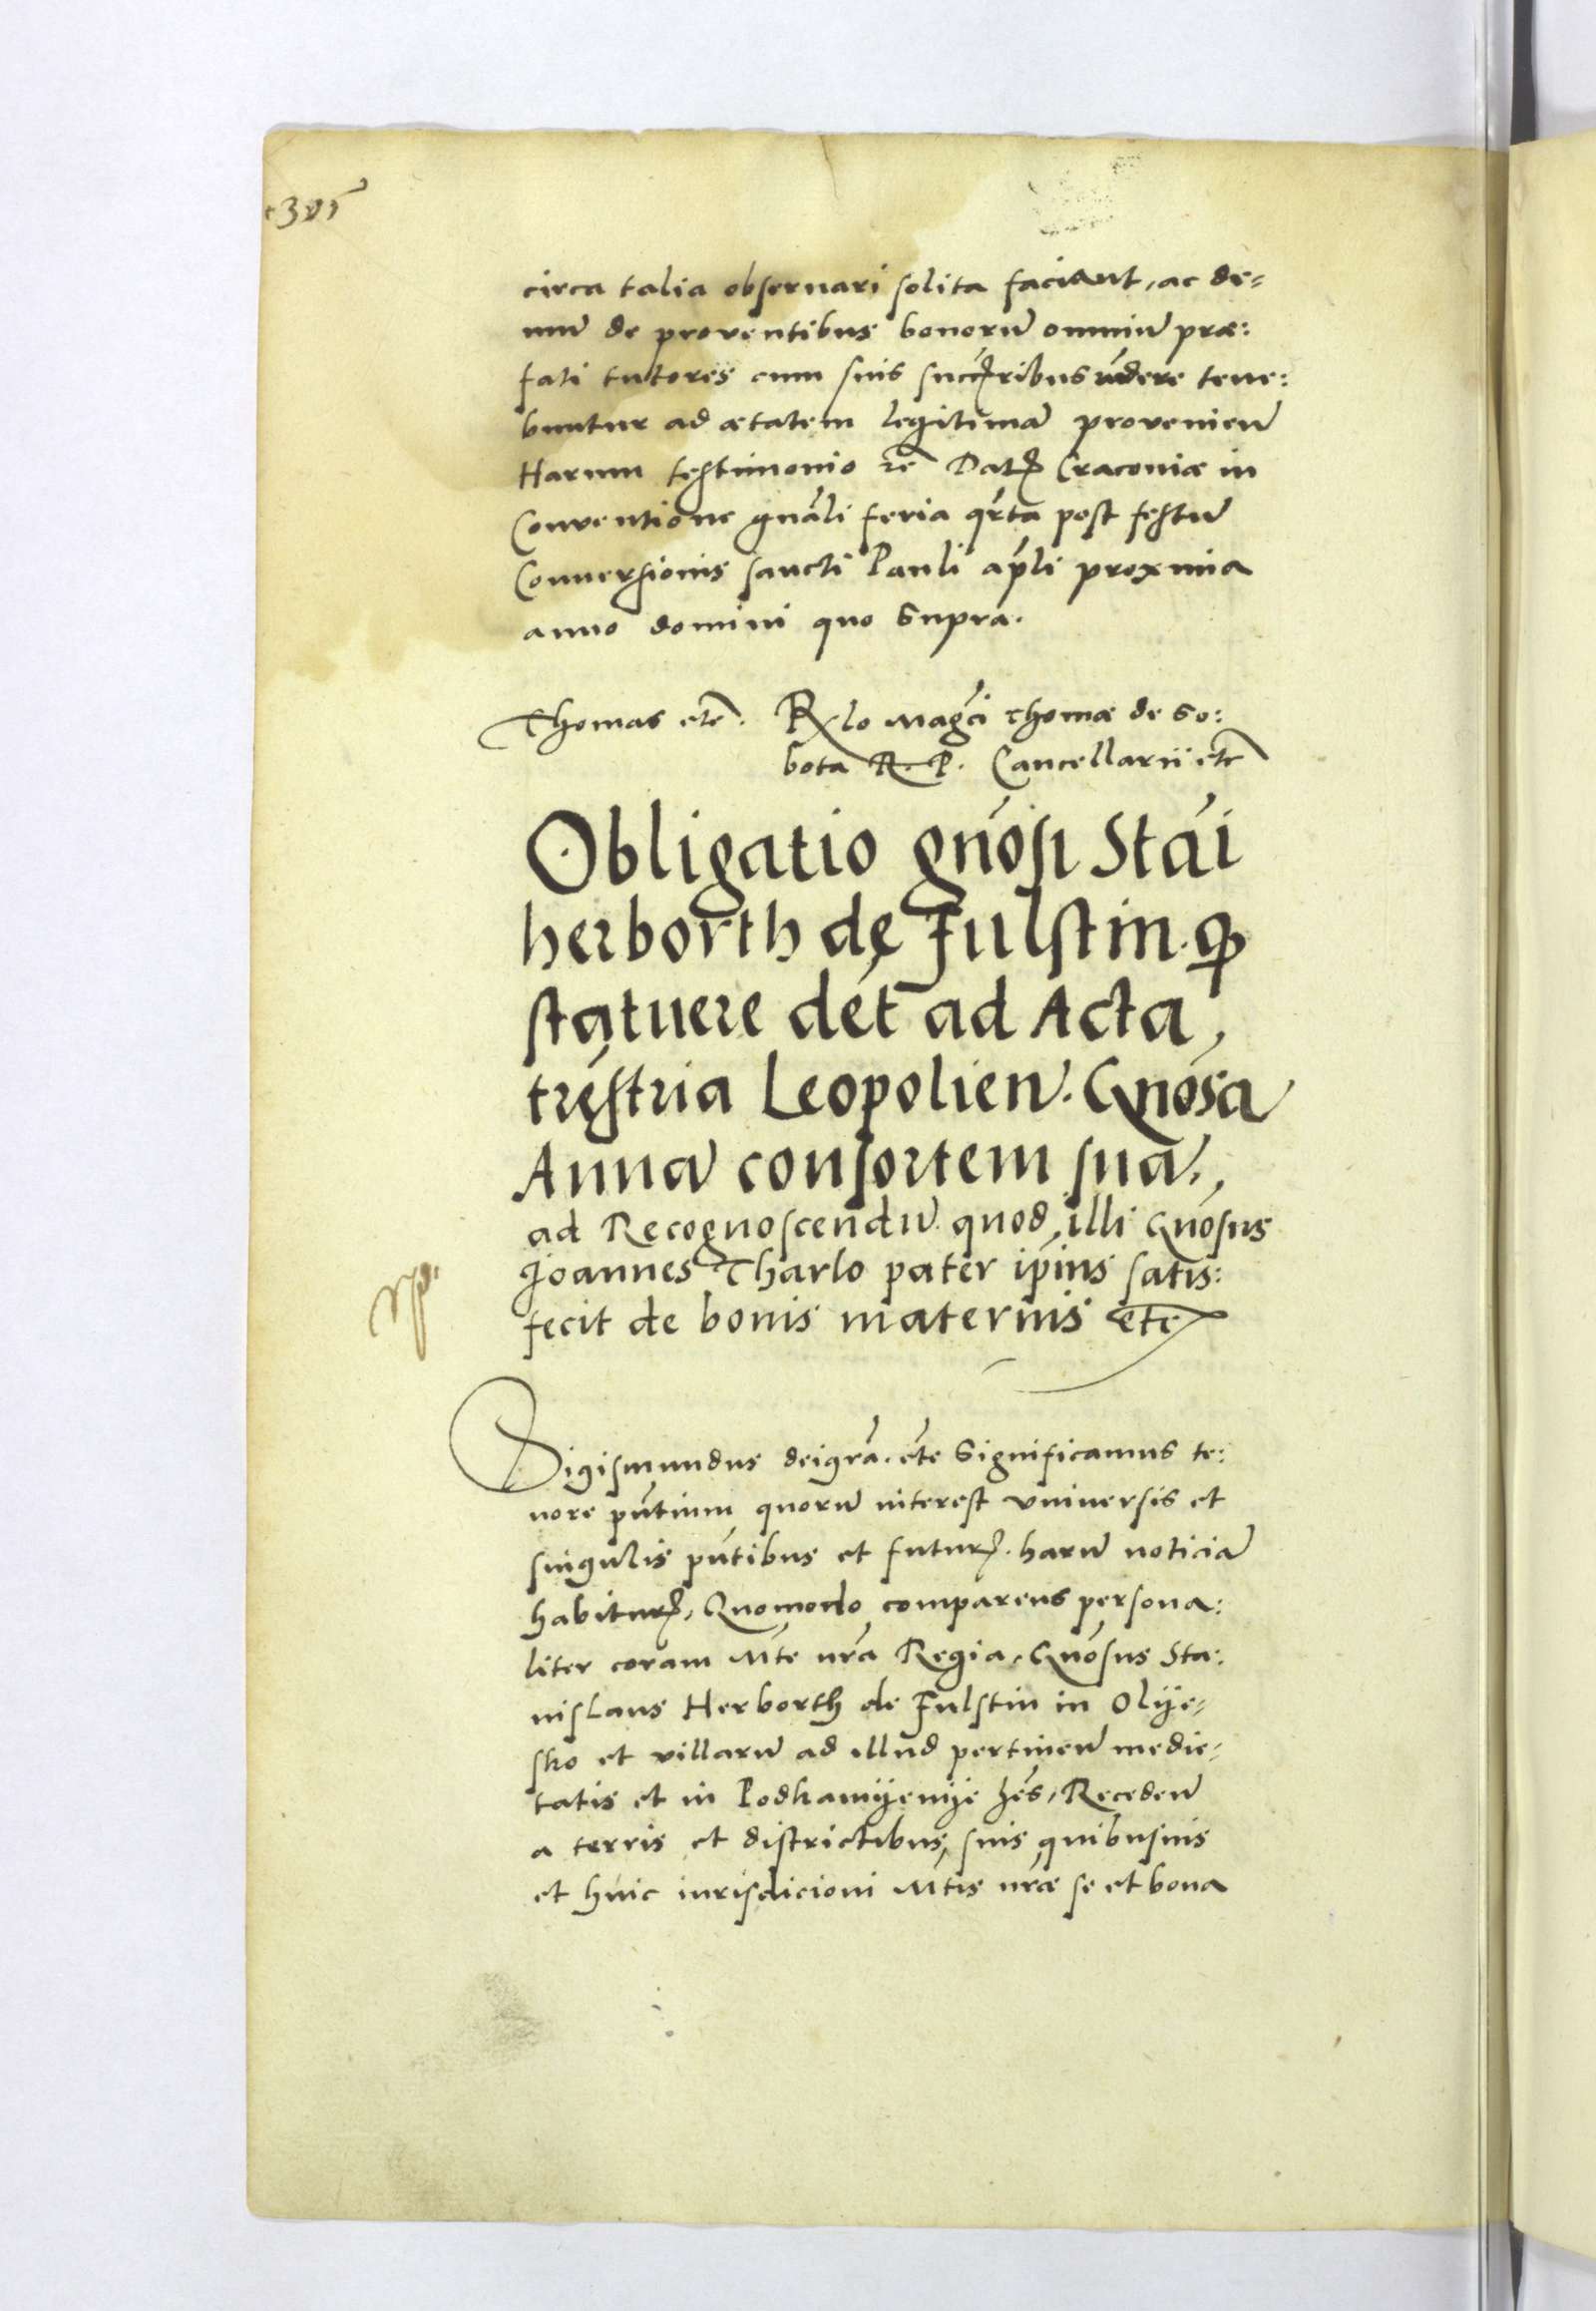 circa talia obseruari solita faciant, ac de=
mū de proventibus bonorū omniū præ:
fati tutores cum suis rn̄dere tene:
buntur ad ætatem legitimā provenieñ
Harum testimonio rē Datꝫ Cracoviæ in
Conventione gn̄ali feria qr̄ta post festū
Conuersionis sancti Pauli ap̄li proxima
anno domini quo Supra.
Thomas etc̄. Rlo Mag̃ci Thomæ de So:
bota R. P. Cancellarii etc̄
Obligatio gn̄osi Stāi
herborth de Fulstin. ꝙ
statuere dēt ad Acta
tr̄estria Leopolieñ. Gn̄osā
Annā consortem suā.,
ad Recognoscendū. quod illi Gn̄osus
Joannes Tharlo pater ip̄ius satis:
fecit de bonis maternis etc̄
Sigismundus dei gr̄a. etc̄ Significamus te:
nore pn̄tium quorū interest vniuersis et
singulis pn̄tibus et futurꝭ. harū noticiā
habiturꝭ, Quomodo comparens persona:
liter coram Mte nr̄a Regia, Gn̄osus Sta:
nislaus Herborth de Fulstin in Olye=
sko et villarū ad illud pertineñ medie=
tatis et in Podkamyenye hēs, Recedeñ
a terris et districtibus, suis quibusuis
et huic iurisdicioni Mtis nr̄æ se et bona